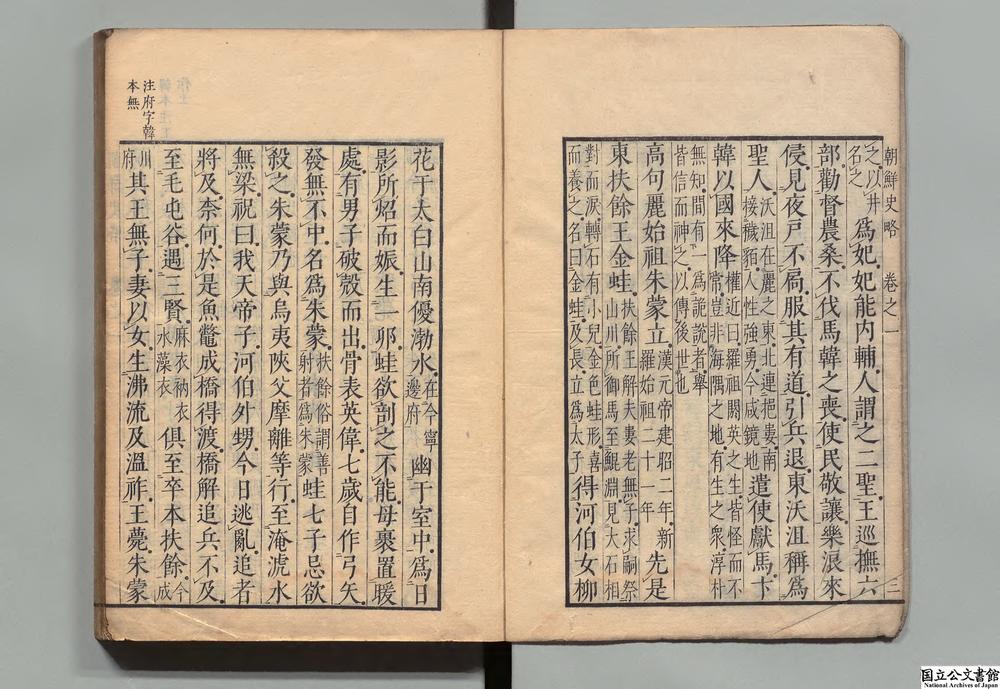 朝鮮史略　卷之一
之以井
名之
爲妃妃能內輔人謂之二聖王巡撫六
部勸督農桑不伐馬韓之喪使民敬讓樂浪來
侵見夜戸不扃服其有道引兵退東沃沮稱爲
聖人
沃沮在麗之東北連挹婁南
接穢貊人性強勇今咸鏡地
遣使獻馬卞
韓以國來降
權近曰羅祖閼英之生皆怪而不
常豈非海隅之地有生之衆淳朴
無知間有一爲詭說者舉
皆信而神之以傳後世也
高句麗始祖朱蒙立
漢元帝建昭二年新
羅始祖二十一年
先是
東扶餘王金蛙
扶餘王解夫婁老無子求嗣祭
山川所御馬至鯤淵見大石相
對而淚轉石有小兒金色蛙形喜
而養之名曰金蛙及長立爲太子
得河伯女柳
花于太白山南優渤水
在今寧
邊府
幽于室中爲日
影所炤而娠生一卵蛙欲剖之不能母裹置暖
處有男子破殼而出骨表英偉七歲自作弓矢
發無不中名爲朱蒙
扶餘俗謂善
射者爲朱蒙
蛙七子忌欲
殺之朱蒙乃與烏夷陝父摩離等行至淹淲水
無梁祝曰我天帝子河伯外甥今日逃亂追者
將及奈何於是魚鼈成橋得渡橋解追兵不及
至毛屯谷遇三賢
麻衣衲衣
水藻衣
俱至卒本扶餘
今成
川府
其王無子妻以女生沸流及溫祚王薨朱蒙
注府字韓
本無
国立公文書館
National Archives of Japan